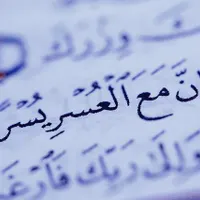 وِزْرَكَ
إنَّ مَعَ ٱلْعُسْرِ يُسْرًا
وَإِلَىٰ رَبِّكَ فَٱرْغَب